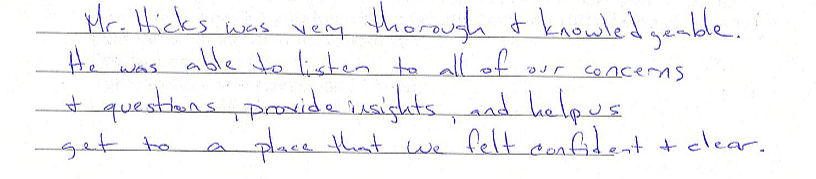 Mr. Hicks was very thorough & knowledgeable.
He was able to listen to all of our concerns
& questions, provide insights, and help us
get to a place that we felt confident & clear.